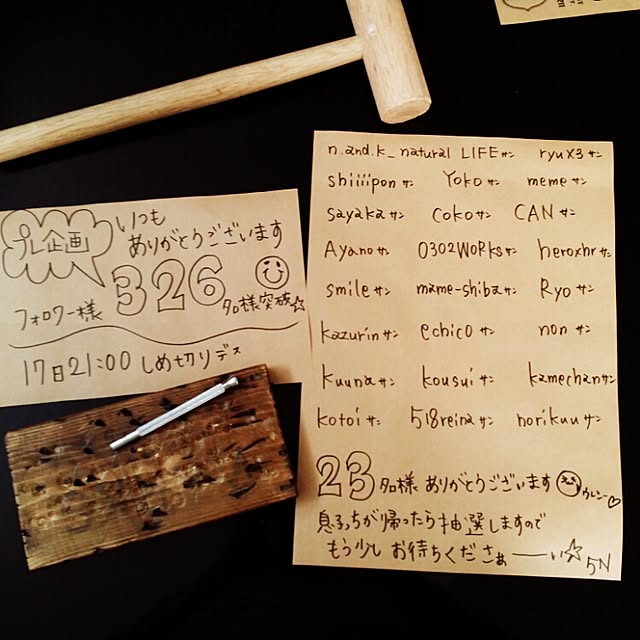 プレ企画
いつも
ありがとうございます
フォロワー様 326 名様突破☆
17日21:00 しめ切りデス
n.and.k_natural LIFEサン ryux3サン
shiiiiponサン Yokoサン memeサン
sayakaサン cokoサン CANサン
Ayanoサン 0302WORKsサン heroxhrサン
smileサン mame-shibaサン Ryoサン
kazurinサン echicoサン nonサン
kuunaサン kousuiサン kamechanサン
kotoiサン 518reinaサン norikuuサン
23名様 ありがとうございます ウレシー♡
息子っちが帰ったら抽選しますので
もう少し お待ちくださぁーーい☆